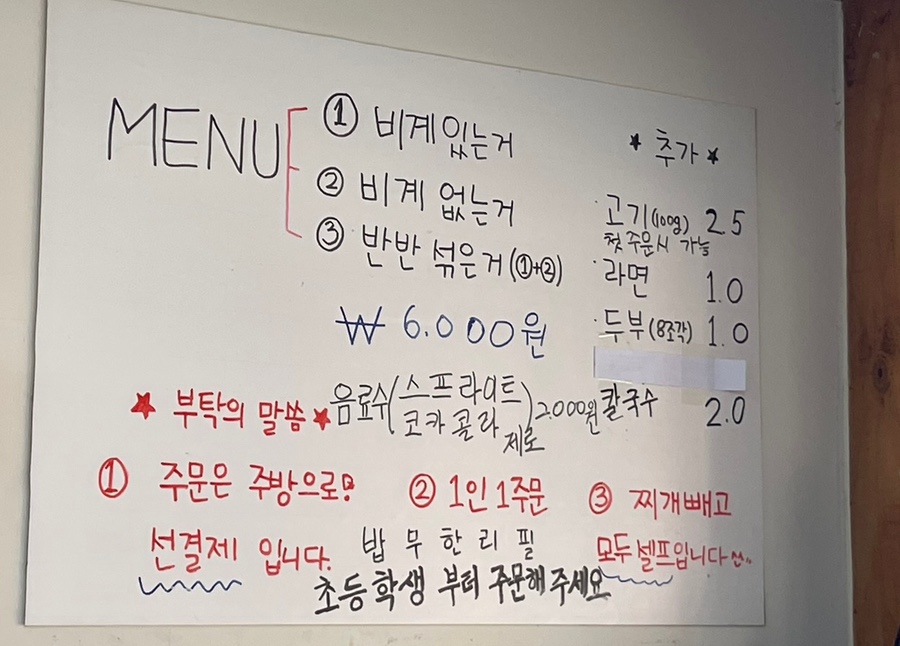 MENU
① 비계있는거
② 비계 없는거
③ 반반 섞은거(①+②)
₩ 6.000원
★ 추가 ★
·고기(100g) 2.5
첫주문시 가능
·라면 1.0
·두부(8조각) 1.0
칼국수 2.0
음료수(스프라이트 코카콜라 제로) 2.000원
★ 부탁의 말씀 ★
① 주문은 주방으로!
선결제 입니다.
② 1인 1주문
밥 무한리필
③ 찌개빼고
모두 셀프입니다^^..
초등학생 부터 주문해주세요